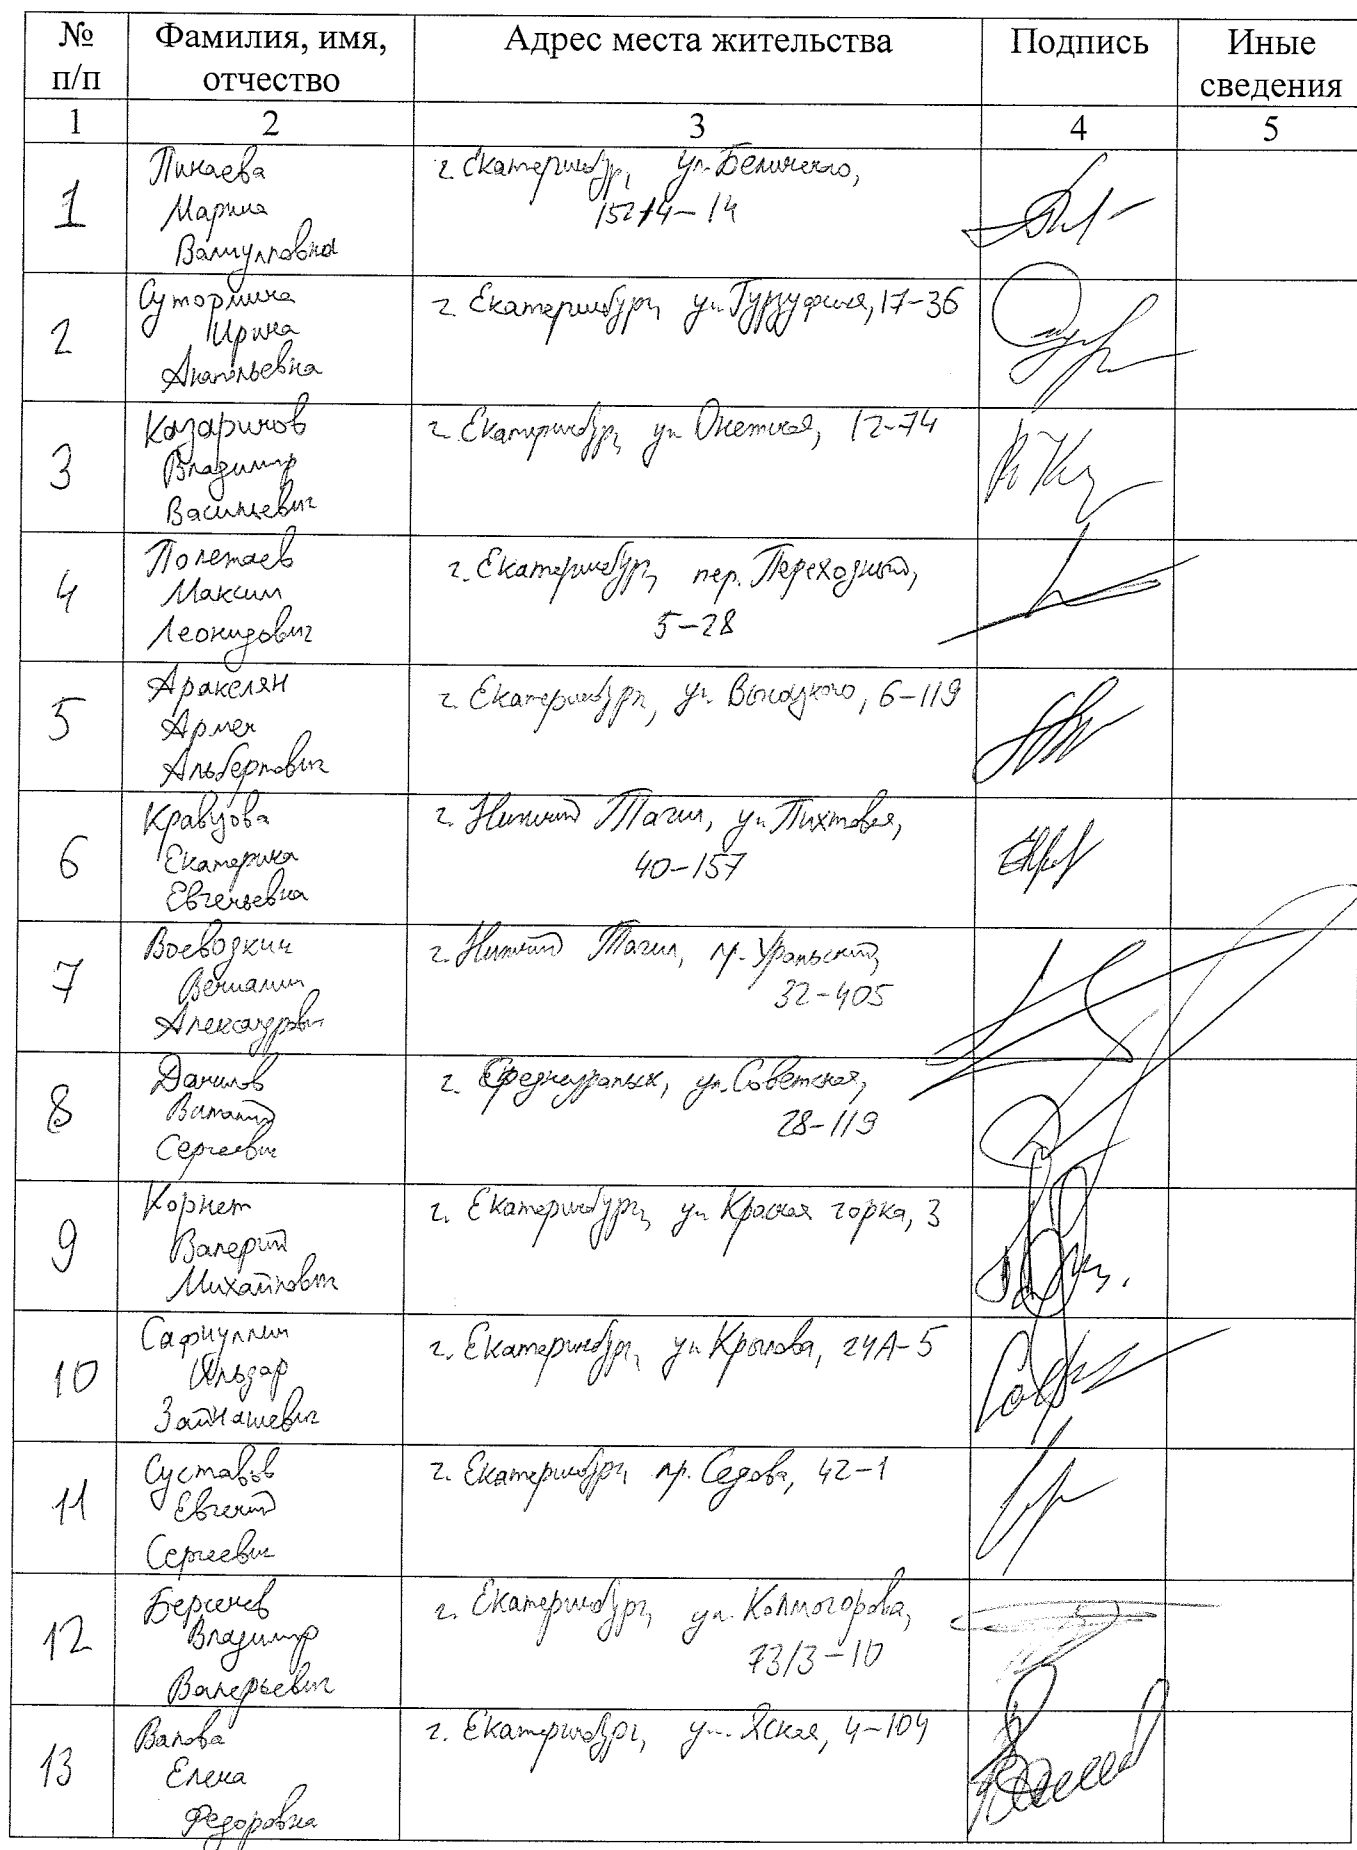 № п/п
Фамилия, имя, отчество
Адрес места жительства
Подпись
Иные сведения
1 2 3 4 5
1
Пинаева
Марина
г. Екатеринбург, ул. Белинского,
152/4-14
2
Сутормина
Ирина
Анатольевна
г. Екатеринбург, ул. Гурзуфская, 17-36
3
Казаринов
Владимир
Васильевич
г. Екатеринбург, ул. Онежская, 12-74
4
Полетаев
Максим
Леонидович
г. Екатеринбург, пер. Переходный,
5-28
5
Аракелян
Армен
Альбертович
г. Екатеринбург, ул. Высоцкого, 6-119
6
Кравцова
Екатерина
Евгеньевна
г. Нижний Тагил, ул. Пихтовая,
40-157
7
Воеводкин
Вениамин
Александрович
г. Нижний Тагил, пр. Уральский,
32-405
8
Данилов
Виталий
Сергеевич
г. Среднеуральск, ул. Советская,
28-119
9
Корнет
Валерий
Михайлович
г. Екатеринбург, ул. Красная горка, 3
10
Сафиуллин
Ильдар
Зайнашевич
г. Екатеринбург, ул. Крылова, 24А-5
11
Суставов
Евгений
Сергеевич
г. Екатеринбург, пр. Седова, 42-1
12
Берсенев
Владимир
Валерьевич
г. Екатеринбург, ул. Колмогорова,
73/3-10
13
Валова
Елена
Федоровна
г. Екатеринбург, ул. Ясная, 4-104